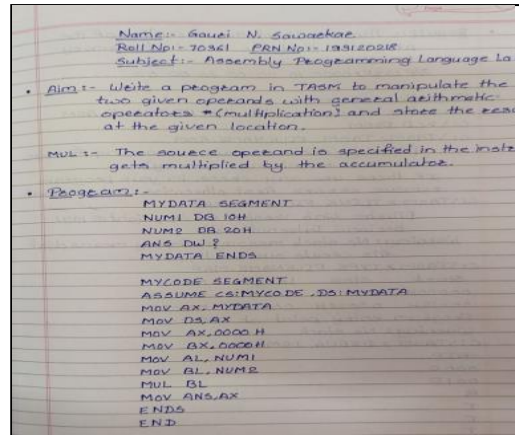 Name:- Gauri N. Sawarkar
Roll No:- 70361 PRN No:- 193120218
Subject:- Assembly Programming Language La
• Aim:- Write a program in TASM to manipulate the
two given operands with general arithmetic
operators *(multiplication) and store the res
at the given location.
MUL:- The source operand is specified in the instr
gets multiplied by the accumulator.
• Program:-
MYDATA SEGMENT
NUM1 DB 10H
NUM2 DB 20H
ANS DW ?
MYDATA ENDS
MYCODE SEGMENT
ASSUME CS:MYCODE ,DS:MYDATA
MOV AX, MYDATA
MOV DS,AX
MOV AX,0000 H
MOV BX,0000H
MOV AL, NUM1
MOV BL, NUM2
MUL BL
MOV ANS,AX
ENDS
END